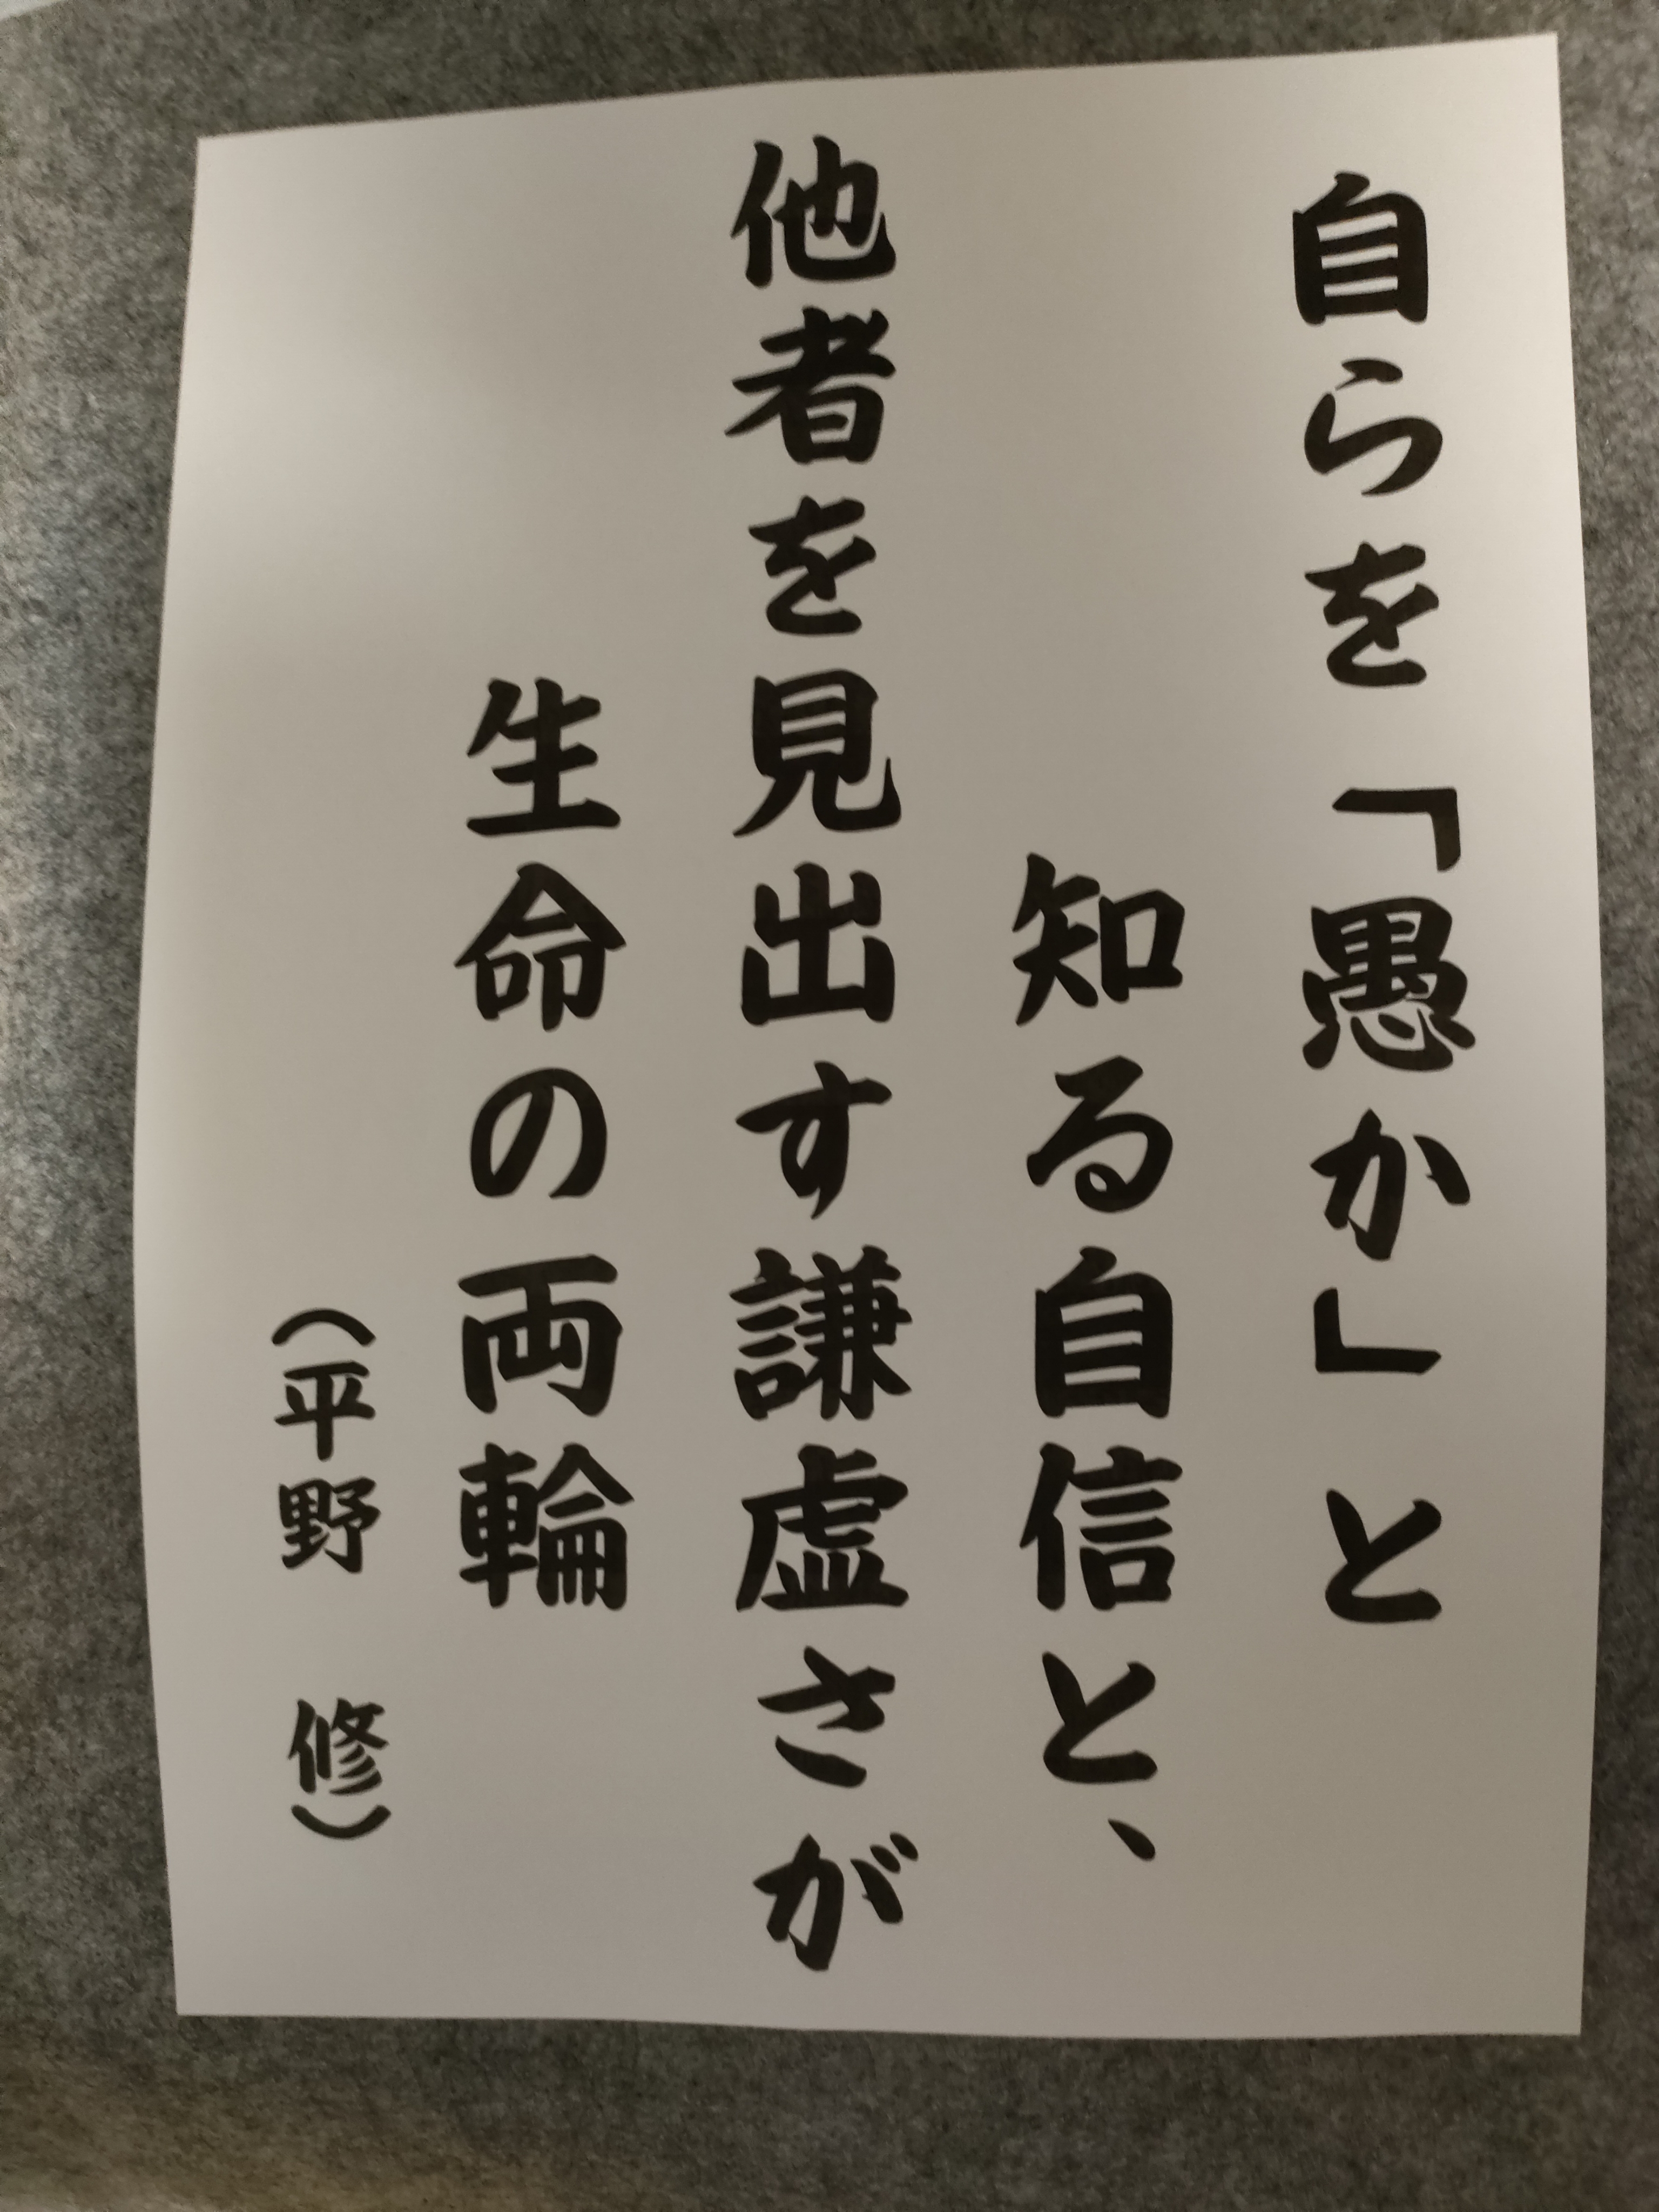 自らを「愚か」と
知る自信と、
他者を見出す謙虚さが
生命の両輪
（平野　修）